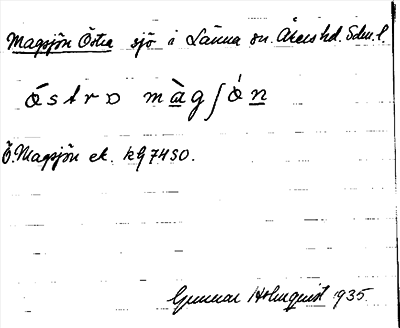 Magsjön Östra sjö i Länna sn. Åkers hd. Sdm. l.
östrɒ màgʃón
Ö. Magsjön ek. kg 74 SO.
Gunnar Holmquist 1935.